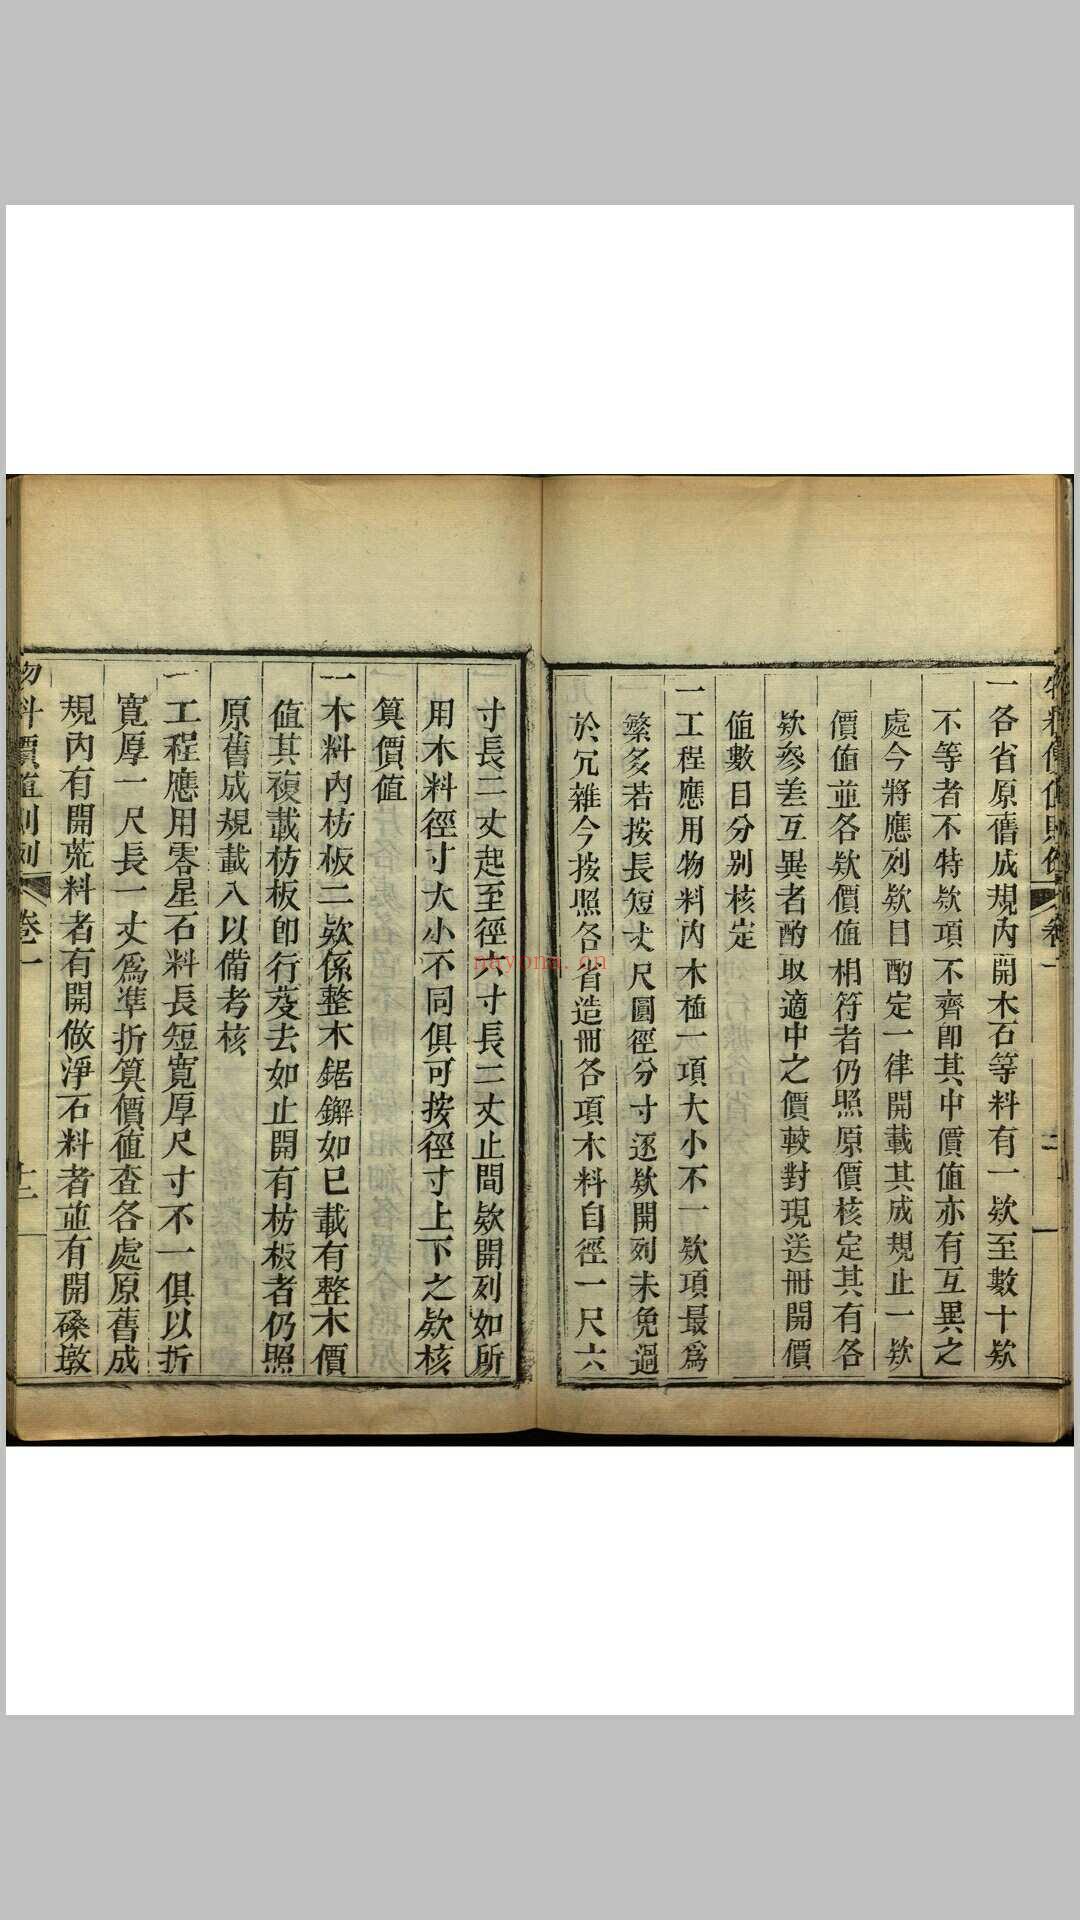 物料價值則例 卷一
一各省原舊成規內開木石等料有一欵至數十欵
不等者不特欵項不齊卽其中價值亦有互異之
處今將應列欵目酌定一律開載其成規止一欵
價值並各欵價值相符者仍照原價核定其有各
欵參差互異者酌取適中之價較對現送冊開價
值數目分別核定
一工程應用物料內木植一項大小不一欵項最爲
繁多若按長短丈尺圓徑分寸逐欵開列未免過
於冗雜今按照各省造冊各項木料自徑一尺六
寸長二丈起至徑六寸長二丈止間欵開列如所
用木料徑寸大小不同俱可按徑寸上下之欵核
算價值
一木料內枋板二欵係整木鋸鐁如巳載有整木價
值其複載枋板卽行芟去如止開有枋板者仍照
原舊成規載入以備考核
一工程應用零星石料長短寬厚尺寸不一俱以折
寬厚一尺長一丈爲準折算價值查各處原舊成
規內有開荒料者有開做淨石料者並有開磉墩
物料價值則例 卷一
nayona.cn